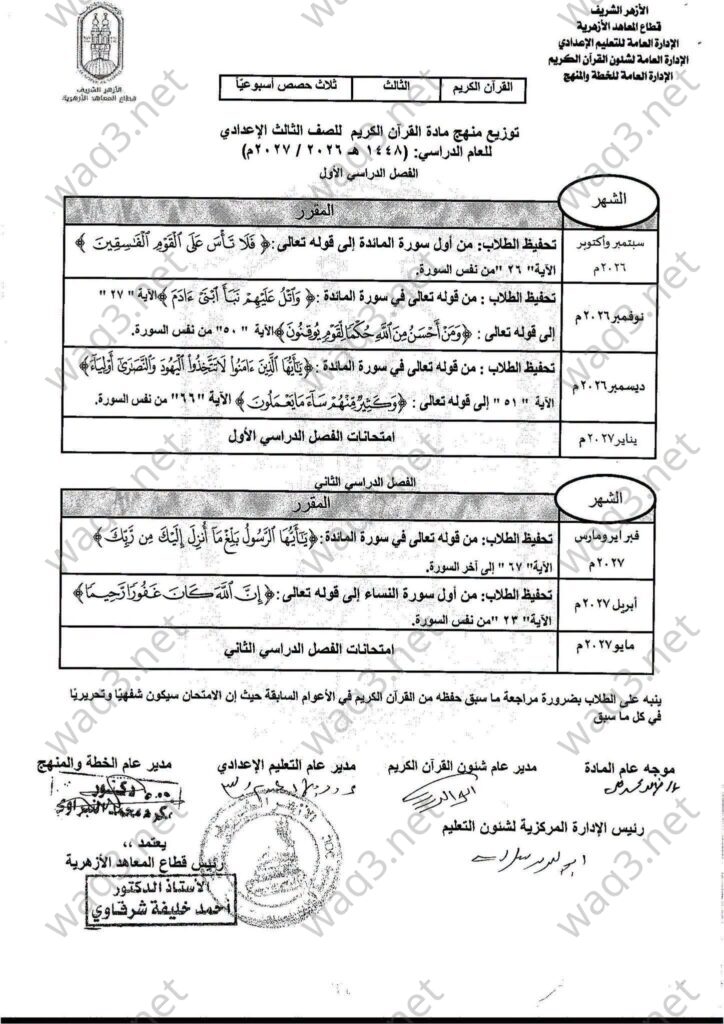 الأزهر الشريف
قطاع المعاهد الأزهرية
الإدارة العامة للتعليم الإعدادي
الإدارة العامة لشئون القرآن الكريم
الإدارة العامة للخطة والمنهج
الأزهر الشريف
قطاع المعاهد الأزهرية
القرآن الكريم الثالث ثلاث حصص أسبوعيًا
توزيع منهج مادة القرآن الكريم للصف الثالث الإعدادي
للعام الدراسي: (١٤٤٨ هـ ٢٠٢٦ / ٢٠٢٧م)
الفصل الدراسي الأول
الشهر المقرر
سبتمبر وأكتوبر ٢٠٢٦م
تحفيظ الطلاب: من أول سورة المائدة إلى قوله تعالى: ﴿ فَلَا تَأْسَ عَلَى ٱلْقَوْمِ ٱلْفَـٰسِقِينَ ﴾
الآية" ٢٦ "من نفس السورة.
نوفمبر ٢٠٢٦م
تحفيظ الطلاب : من قوله تعالى في سورة المائدة :﴿ وَٱتْلُ عَلَيْهِمْ نَبَأَ ٱبْنَىْ ءَادَمَ ﴾الآية " ٢٧ "
إلى قوله تعالى : ﴿وَمَنْ أَحْسَنُ مِنَ ٱللَّهِ حُكْمًا لِّقَوْمٍ يُوقِنُونَ﴾الآية "٥٠" من نفس السورة.
ديسمبر ٢٠٢٦م
تحفيظ الطلاب : من قوله تعالى في سورة المائدة :﴿يَـٰٓأَيُّهَا ٱلَّذِينَ ءَامَنُوا۟ لَا تَتَّخِذُوا۟ ٱلْيَهُودَ وَٱلنَّصَـٰرَىٰٓ أَوْلِيَآءَ﴾
الآية " ٥١" إلى قوله تعالى : ﴿وَكَثِيرٌ مِّنْهُمْ سَآءَ مَا يَعْمَلُونَ ﴾ الآية "٦٦" من نفس السورة.
يناير ٢٠٢٧م امتحانات الفصل الدراسي الأول
الفصل الدراسي الثاني
الشهر المقرر
فبراير ومارس ٢٠٢٧م
تحفيظ الطلاب: من قوله تعالى في سورة المائدة :﴿يَـٰٓأَيُّهَا ٱلرَّسُولُ بَلِّغْ مَآ أُنزِلَ إِلَيْكَ مِن رَّبِّكَ ﴾
الآية" ٦٧ "إلى آخر السورة.
أبريل ٢٠٢٧م
تحفيظ الطلاب: من أول سورة النساء إلى قوله تعالى:﴿ إِنَّ ٱللَّهَ كَانَ غَفُورًا رَّحِيمًا ﴾
الآية" ٢٣ "من نفس السورة.
مايو ٢٠٢٧م امتحانات الفصل الدراسي الثاني
ينبه على الطلاب بضرورة مراجعة ما سبق حفظه من القرآن الكريم في الأعوام السابقة حيث إن الامتحان سيكون شفهيًا وتحريريًا
في كل ما سبق
موجه عام المادة مدير عام شئون القرآن الكريم مدير عام التعليم الإعدادي مدير عام الخطة والمنهج
دكتور
رئيس الإدارة المركزية لشئون التعليم
يعتمد ،،
رئيس قطاع المعاهد الأزهرية
الأستاذ الدكتور
أحمد خليفة شرقاوي
waq3.net